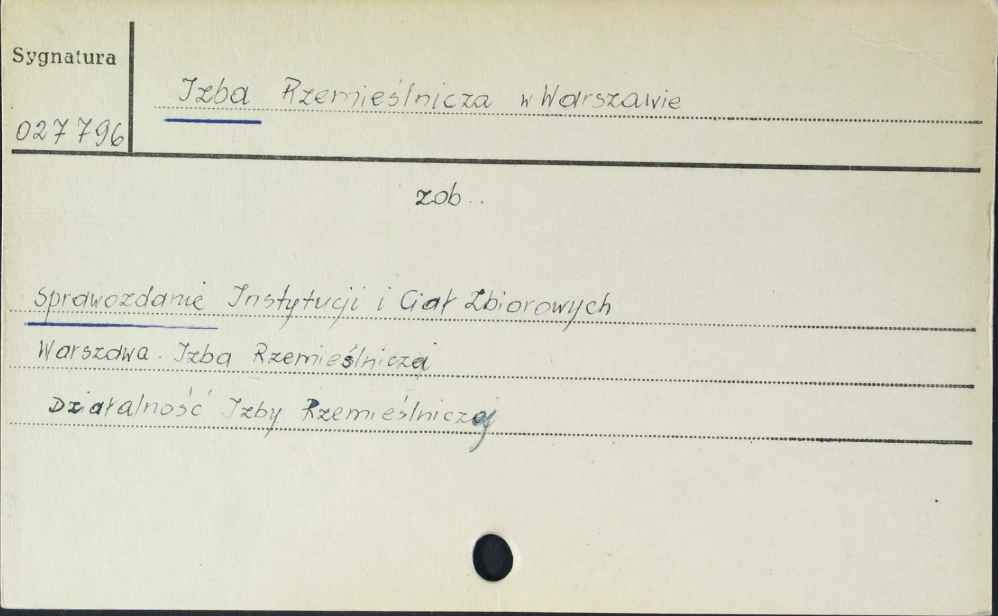 Sygnatura
Izba Rzemieślnicza w Warszawie
027796
zob..
Sprawozdanie Instytucji i Ciał Zbiorowych
Warszawa. Izba Rzemieślnicza
Działalność Izby Rzemieślniczej